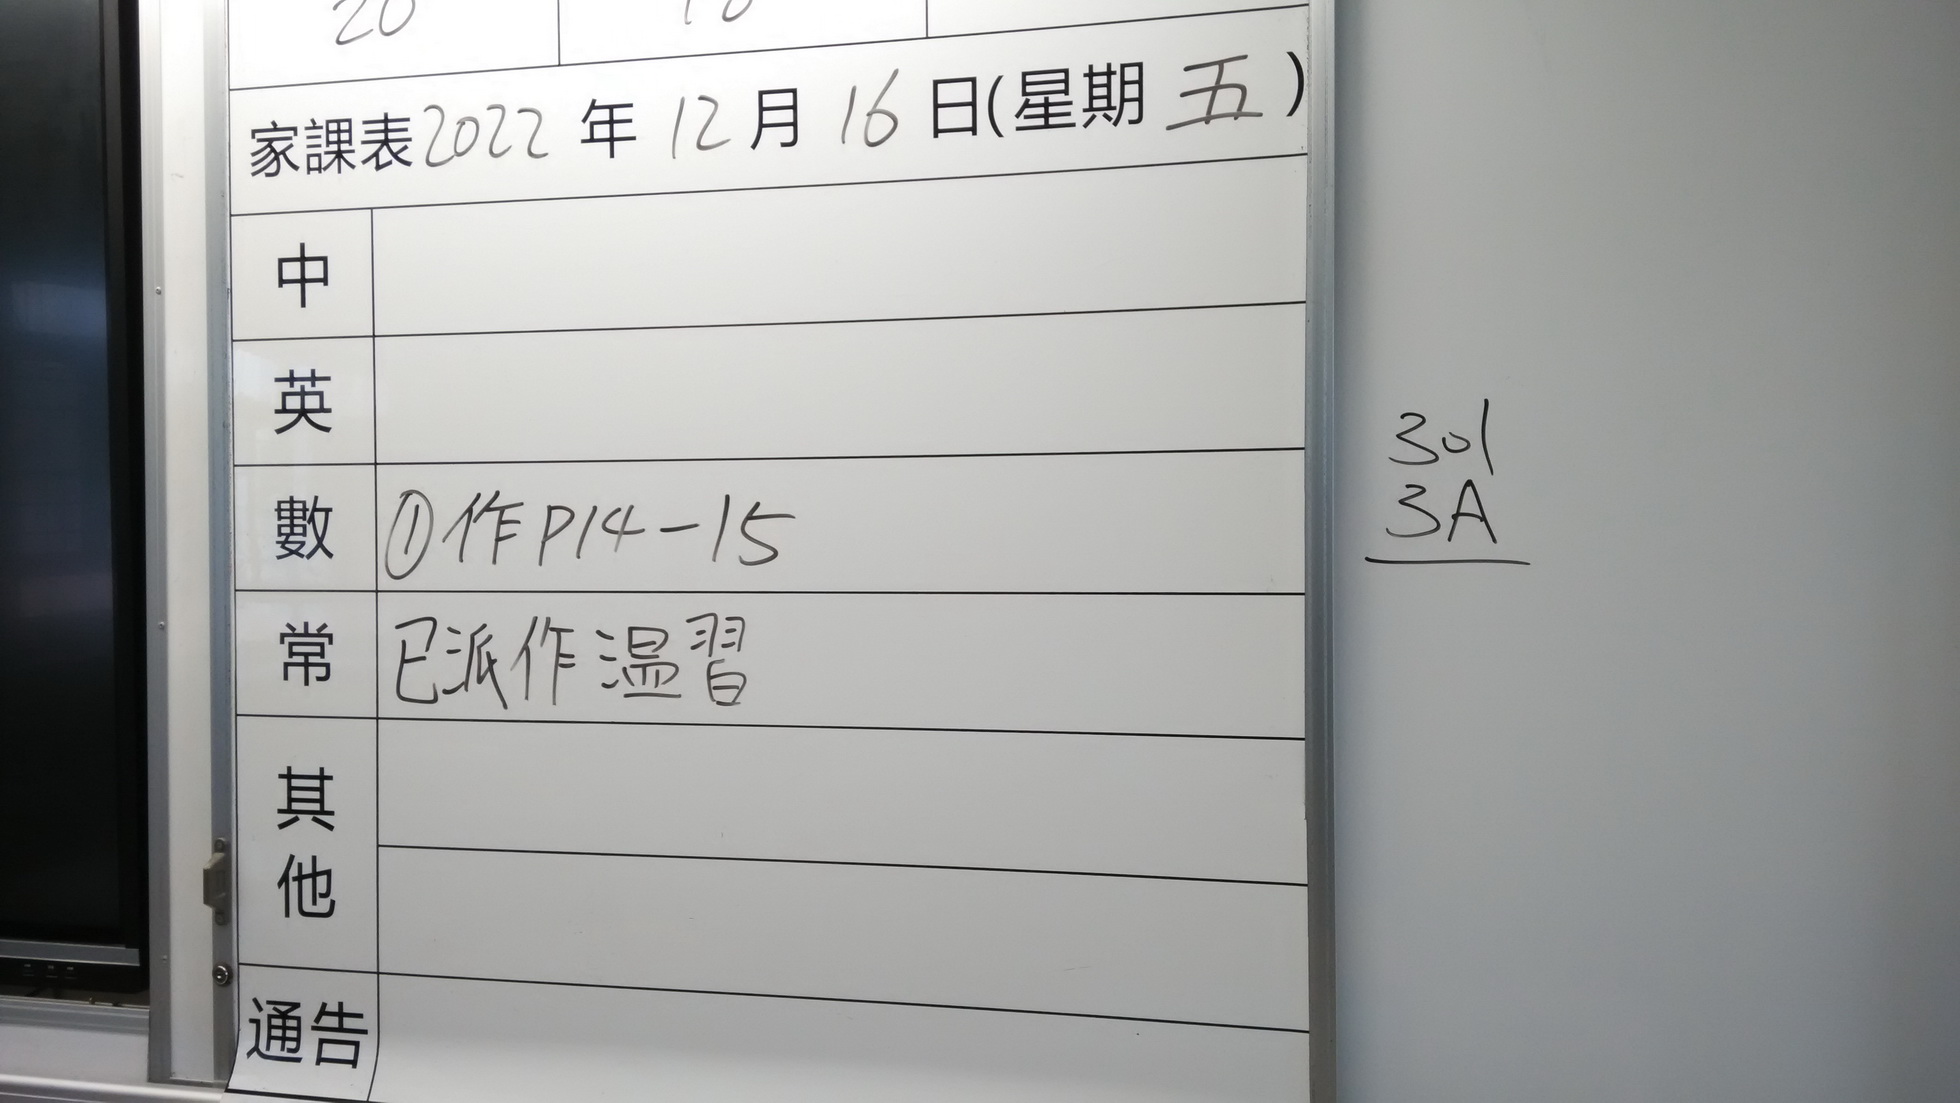 20
家課表 2022 年 12 月 16 日(星期 五)
中
英
數 ①作 P14-15
常 已派作 溫習
其他
通告
301
3A